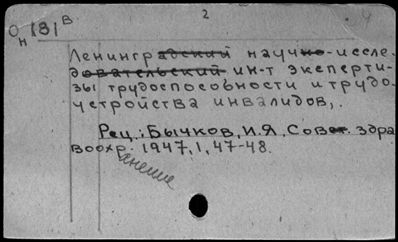 2
Он 181 В
Ленинградский научно-иссле-
довательский ин-т эксперти-
зы трудоспособности и трудо-
устройства инвалидов,.
Рец.: Бычков, И.Я. Совет. здра
воохр. 1947, 1, 47-48.
анение